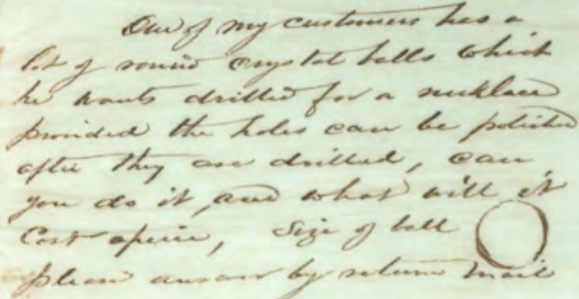 One of my customers has a
lot of round crystal balls which
he wants drilled for a necklace
provided the holes can be polished
after they are drilled, can
you do it, and what will it
Cost apiece, Size of ball
please answer by return mail